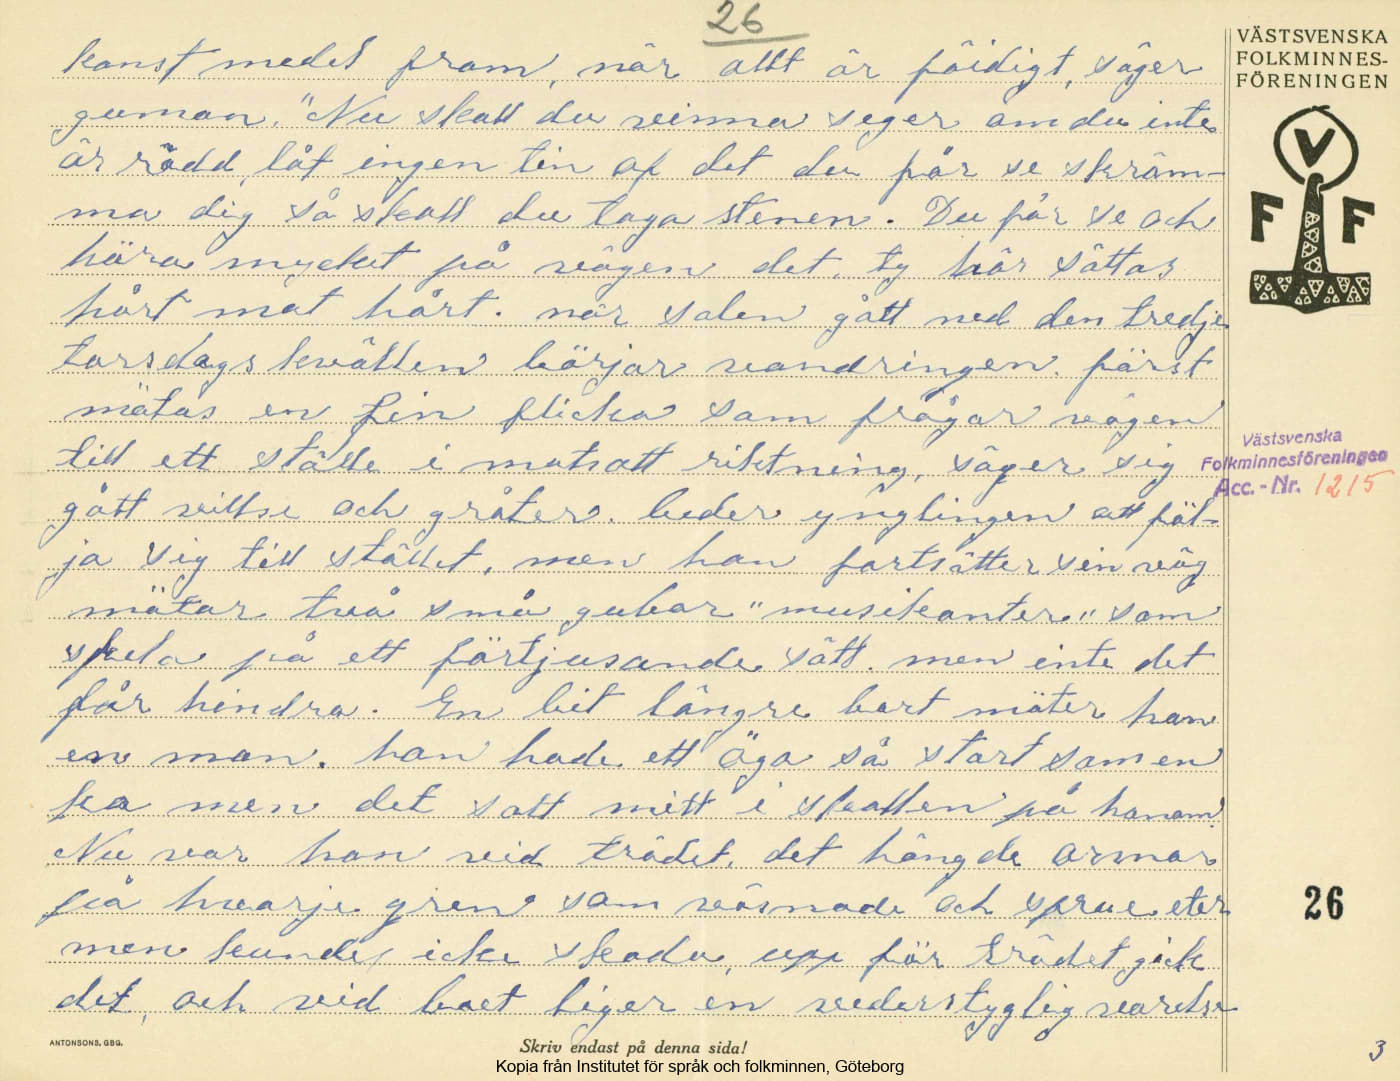 26
VÄSTSVENSKA
FOLKMINNES-
FÖRENINGEN
V
F F
konstmedel fram, när allt är färdigt, säger
guman. "Nu skall du vinna seger om du inte
är rädd, låt ingen ting af det du får se skräm-
ma dig så skall du taga stenen. Du får se och
höra mycket på vägen det, ty här sättas
hårt mot hårt. när solen gått ned den tredje
torsdagskvällen börjar vandringen. först
mötas en fin flicka som frågar vägen
till ett ställe i motsatt riktning, säger sig
gått villse och gråter. beder ynglingen att föl-
ja sig till stället, men han fortsätter sin väg
mötar två små gubar "musikanter" som
spela på ett förtjusande sätt. men inte det
får hindra. En bit längre bort möter han
en man. han hade ett öga så stort som en
ko men det satt mitt i skallen på honom.
Nu var han vid trädet. det hängde ormar
på hvarje gren som väsnade och sprue eter
men kunde icke skada, upp för trädet gick
det, och vid boet liger en vederstyglig varelse
Västsvenska
Folkminnesföreningen
Acc. - Nr. 1215
26
ANTONSONS, GBG.
Skriv endast på denna sida!
3
Kopia från Institutet för språk och folkminnen, Göteborg